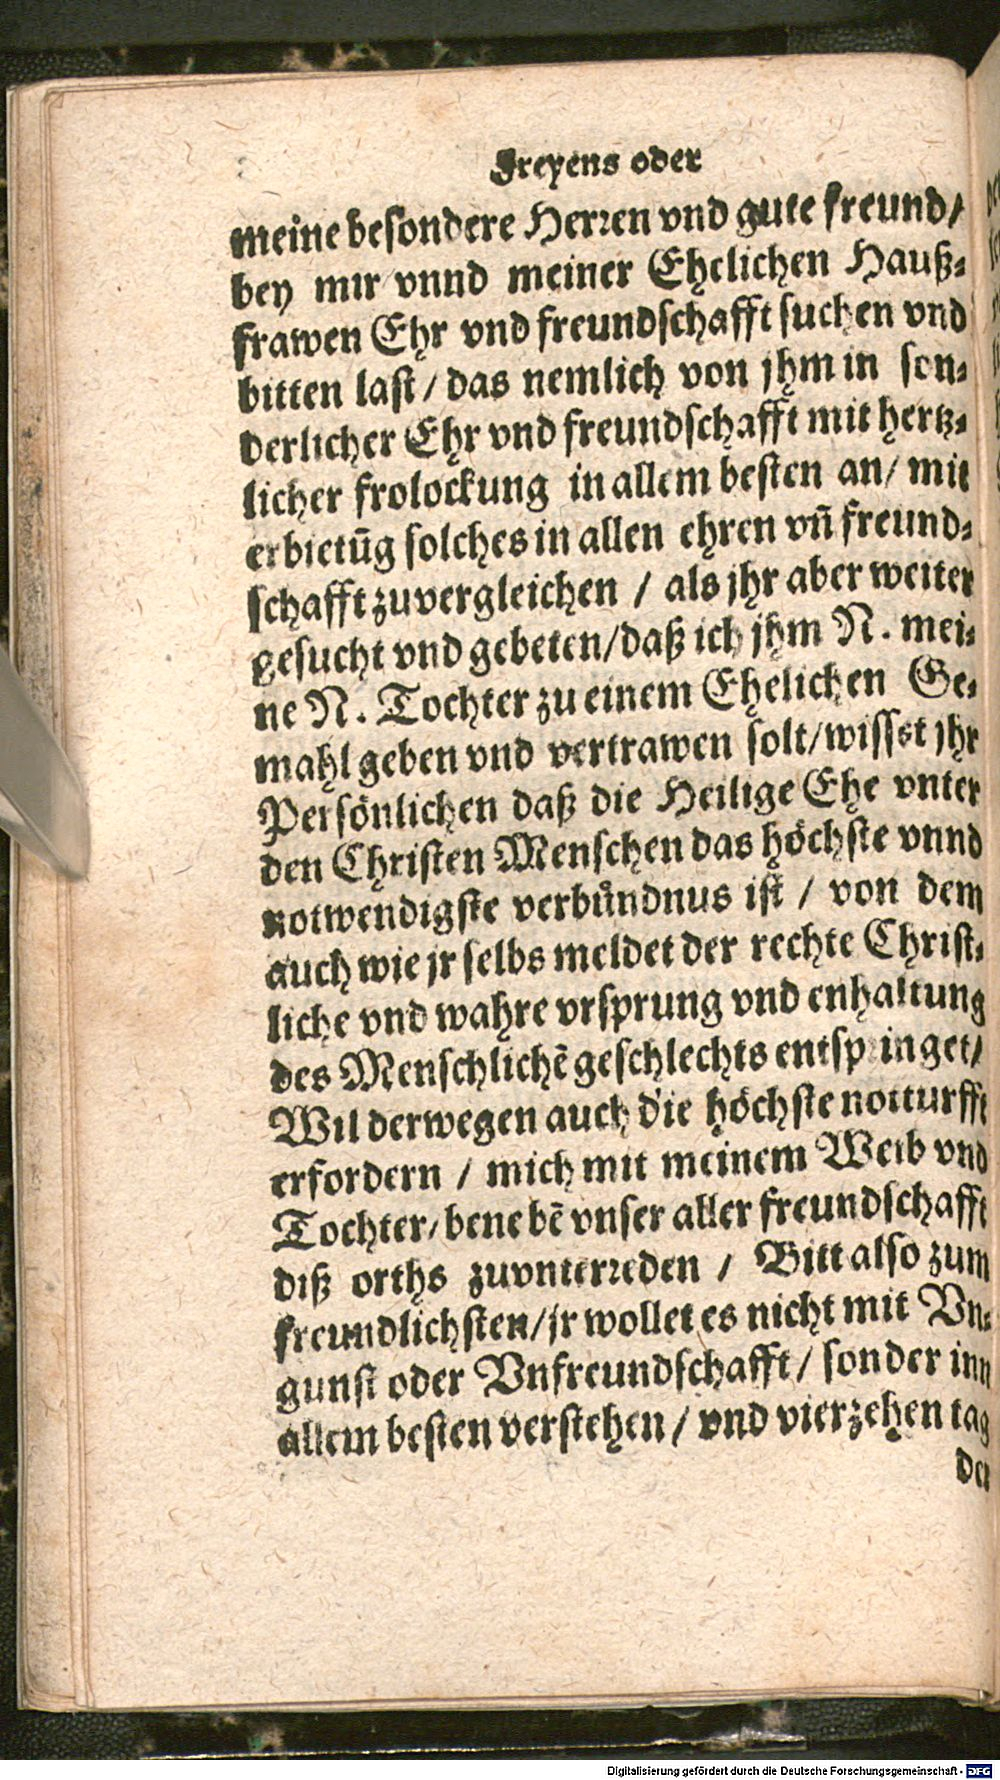 Freyens oder
meine besondere Herren vnd gute freund/
bey mir vnnd meiner Ehelichen Hauß-
frawen Ehr vnd freundschafft suchen vnd
bitten last / das nemlich von jhm in son-
derlicher Ehr vnd freundschafft mit hertz-
licher frolockung in allem besten an/ mit
erbietūg solches in allen ehren vñ freund-
schafft zuvergleichen / als jhr aber weiter
gesucht vnd gebeten/daß ich jhm N. mei-
ne N. Tochter zu einem Ehelichen Ge-
mahl geben vnd vertrawen solt/wisset jhr
Persönlichen daß die Heilige Ehe vnter
den Christen Menschen das höchste vnnd
notwendigste verbündnus ist / von dem
auch wie jr selbs meldet der rechte Christ-
liche vnd wahre vrsprung vnd enhaltung
des Menschlichē geschlechts entspringet/
Wil derwegen auch die höchste notturfft
erfordern / mich mit meinem Weib vnd
Tochter/ benebē vnser aller freundschafft
diß orths zuvnterreden / Bitt also zum
freundlichsten/jr wollet es nicht mit Vn-
gunst oder Vnfreundschafft/ sonder inn
allem besten verstehen / vnd vierzehen tag
der
Digitalisierung gefördert durch die Deutsche Forschungsgemeinschaft - DFG